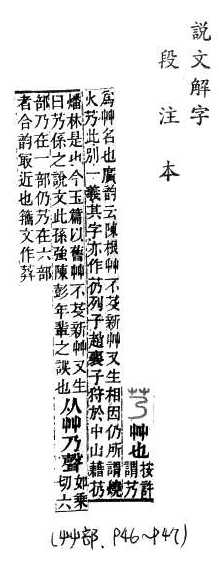 説文解字
段注本
艿 艸也 按許謂艿
爲艸名也廣韵云陳根艸不芟新艸又生相因仍所謂燒
火艿此別一義其字亦作芿列子趙襄子狩於中山藉芿
燔林是也今玉篇以舊艸不芟新艸又生
曰艿係之說文此孫强陳彭年輩之誤也 从艸乃聲 如乘切六
部乃在一部仍艿在六部
者合韵最近也籒文作𦬫
(艸部、P46~P47)